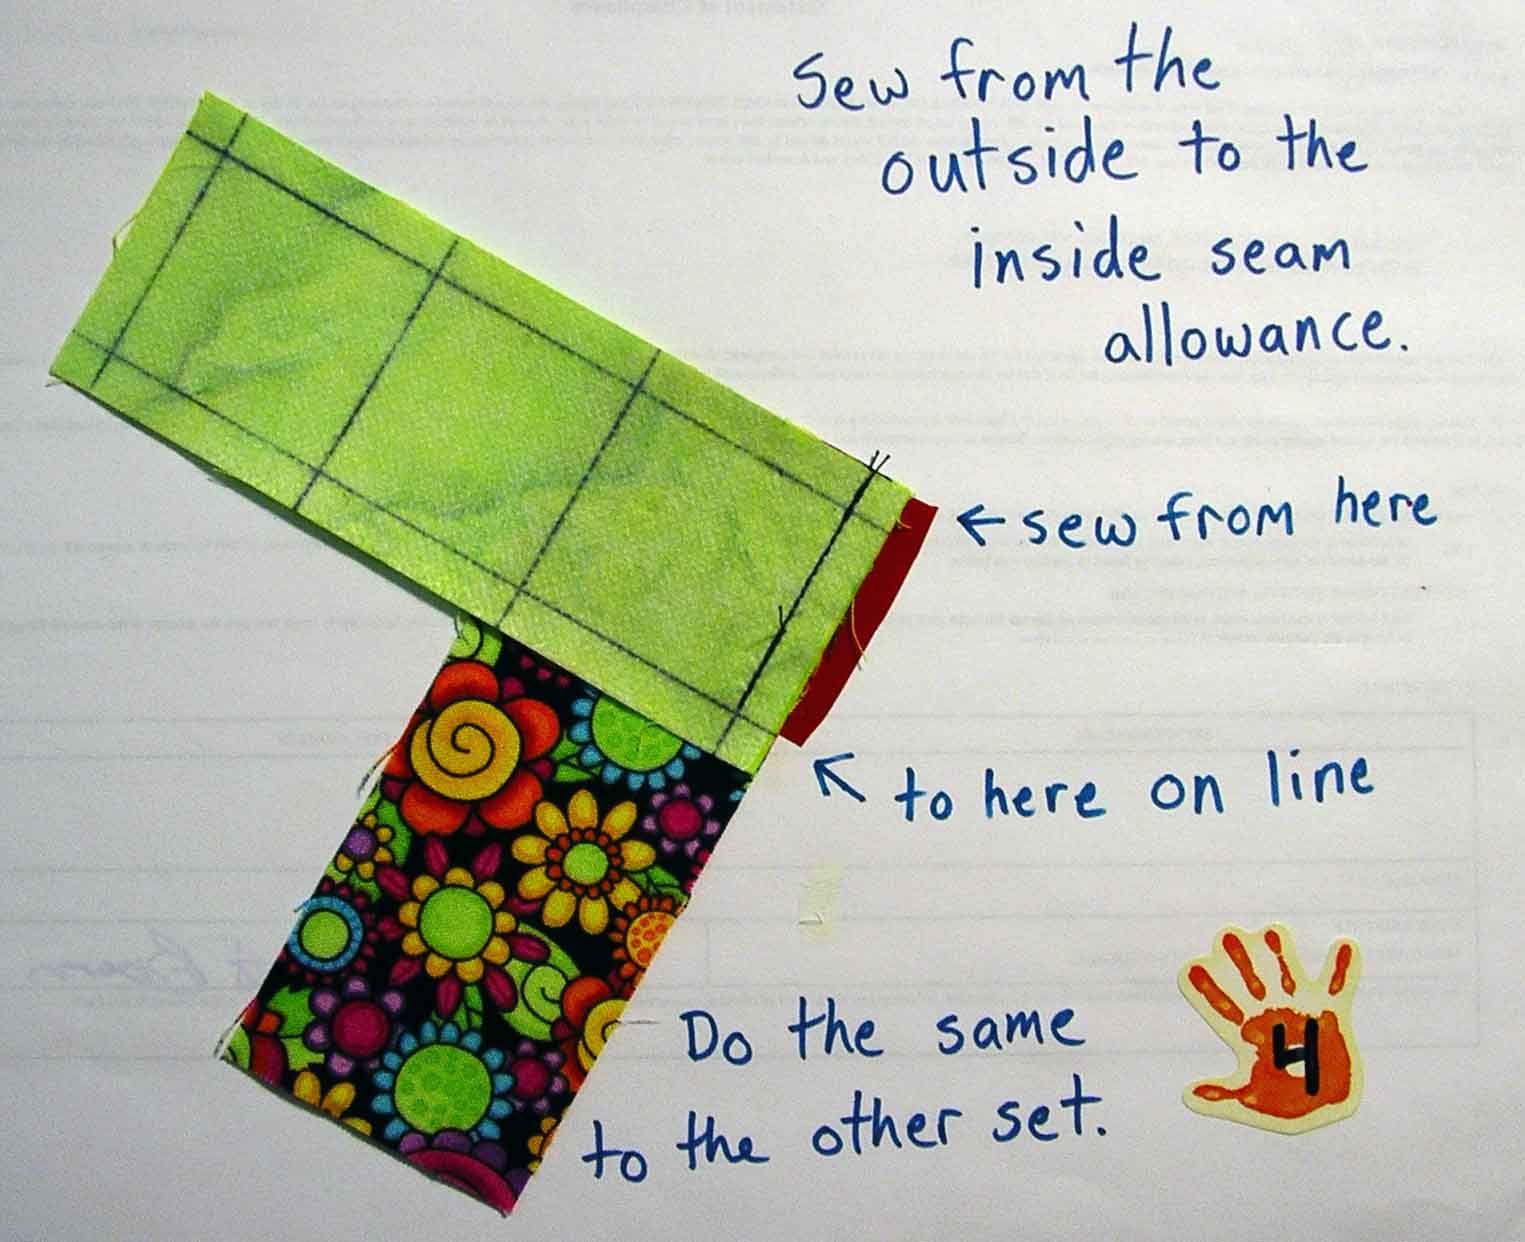 Sew from the
outside to the
inside seam
allowance.
← sew from here
↖ to here on line
Do the same
to the other set.
4